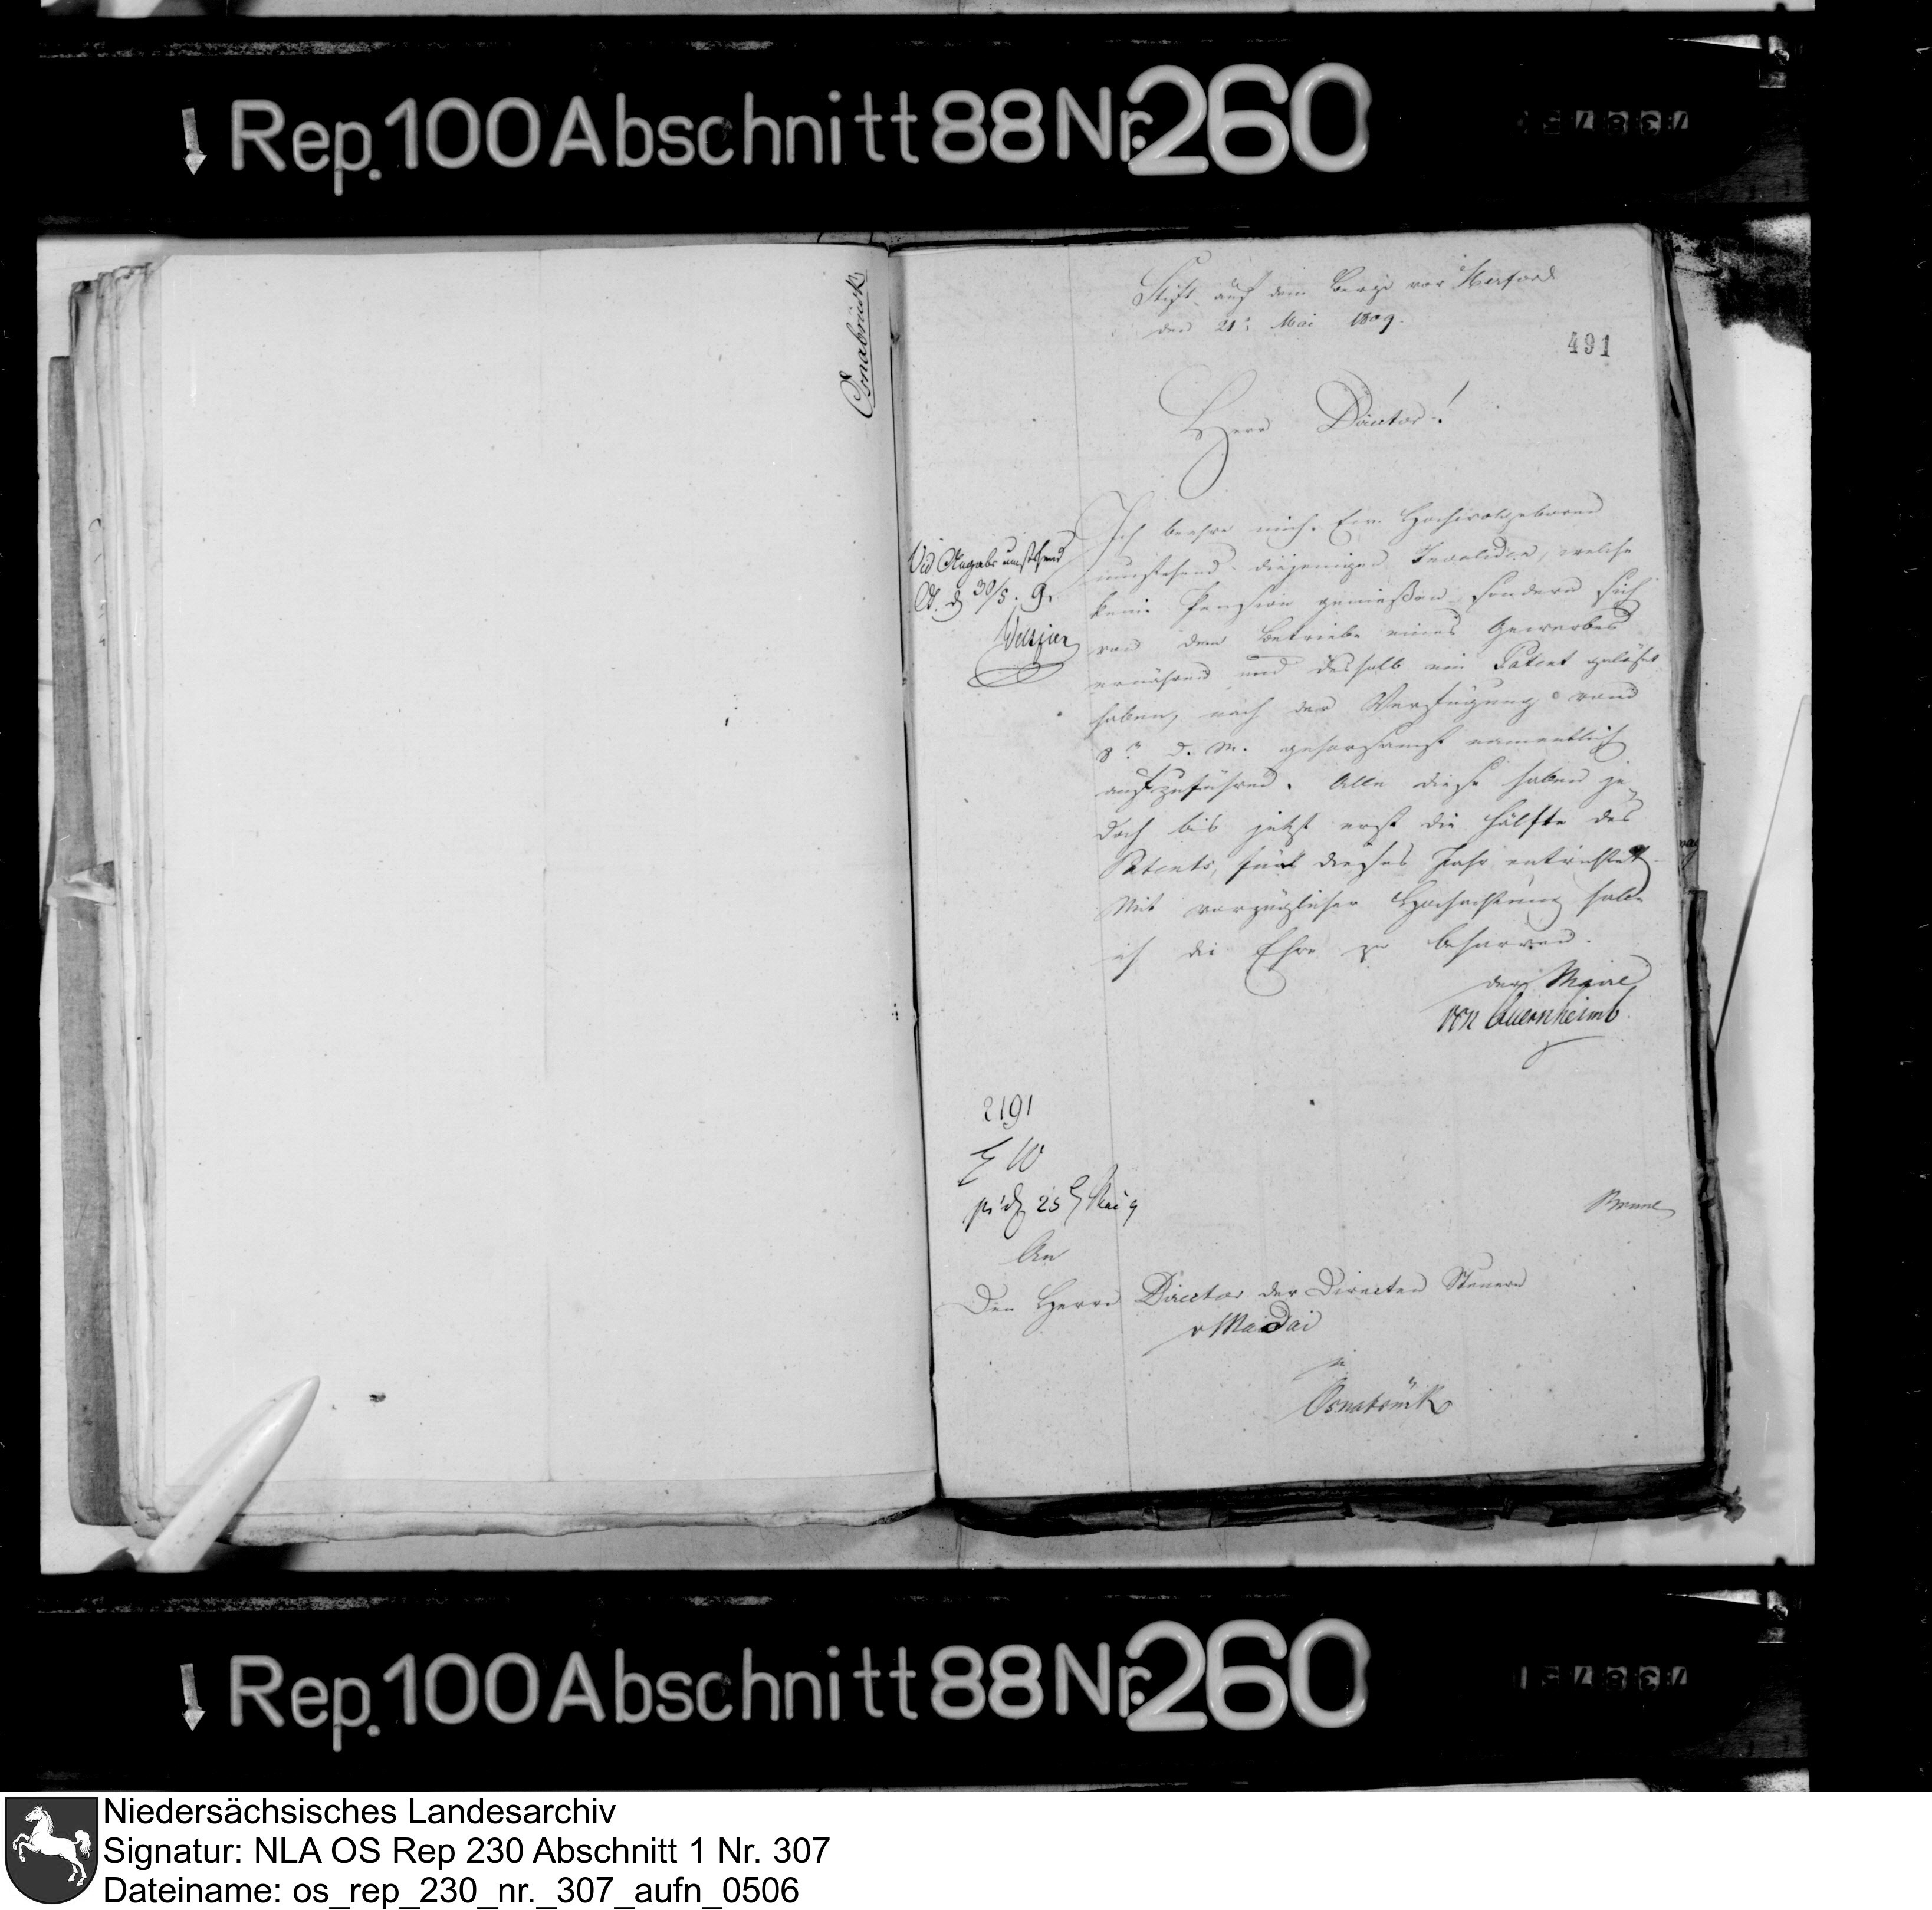 Rep. 100 Abschnitt 88 Nr. 260
Osnabrück
Stift auf dem Berge vor Herford
den 21n Mai 1809.
491
Herr Director!
Ich beehre mich Ew. Hochwolgeboren
umstehend diejenigen Invaliden, welche
keine Pension genießen sondern sich
von dem Betriebe eines Gewerbes
ernähren und deshalb ein Patent gelöset
haben, nach der Verfügung vom
8n d. M. gehorsamst namentlich
aufzuführen. Alle diese haben je-
doch bis jetzt erst die Hälfte des
Patents, für dieses Jahr entrichtet.
Mit vorzüglicher Hochachtung habe
ich die Ehre zu beharren.
der Maire
von Quernheimb.
Vid Angabe umstehend
O. d 30/5. 9.
2191
pr d 25 Mai 9
An
Den Herrn Director der Directen Steuern
v Maidai
in
Osnabrück
Rep. 100 Abschnitt 88 Nr. 260
Niedersächsisches Landesarchiv
Signatur: NLA OS Rep 230 Abschnitt 1 Nr. 307
Dateiname: os_rep_230_nr._307_aufn_0506